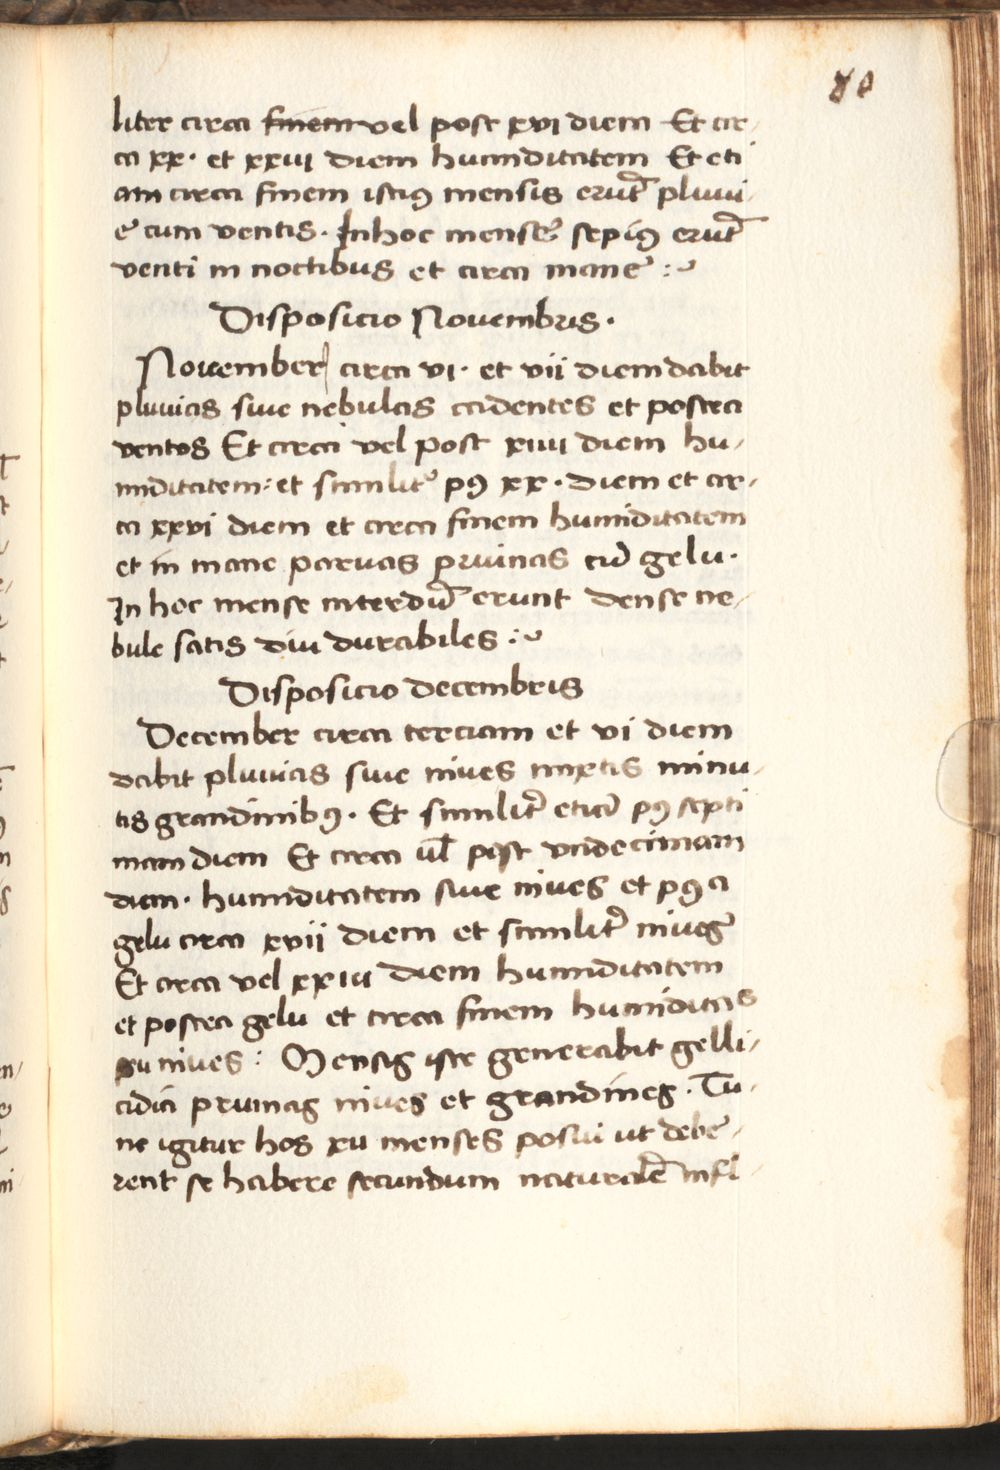 80
liter circa finem vel post xvi diem Et cir-
ca xx. et xxiii diem humiditatem Et eti
am circa finem istiꝰ mensis erūt pluui-
e cum ventis. In hoc mense sepiꝰ erūt
venti in noctibus et circa mane :~
Disposicio Nouembris.
Nouember circa vi. et vii diem dabit
pluuias siue nebulas cadentes et postea
ventos Et circa vel post xiiii diem hu-
miditatem: et similit᷑ pꝰ xx. diem et cir-
ca xxvi diem et circa finem humiditatem
et in mane paruas pruinas cū gelu.
In hoc mense interdū erunt dense ne-
bule satis diu durabiles :~
Disposicio decembris
December circa terciam et vi diem
dabit pluuias siue niues mixtis minu-
tis grandinibꝰ. Et similit᷑ etiā pꝰ septi
mam diem Et circa ul̄ post vndecimam
diem. humiditatem siue niues et pꝰ a
gelu circa xvii diem et similit᷑ niues
Et circa vel xxiii diem humiditatem
et postea gelu et circa finem humiditas
eu niues : Mensis iste generabit gelli-
cidia pruinas niues et grandines. Tu-
nc igitur hos xii menses posui ut debe-
rent se habere secundum naturalē infl